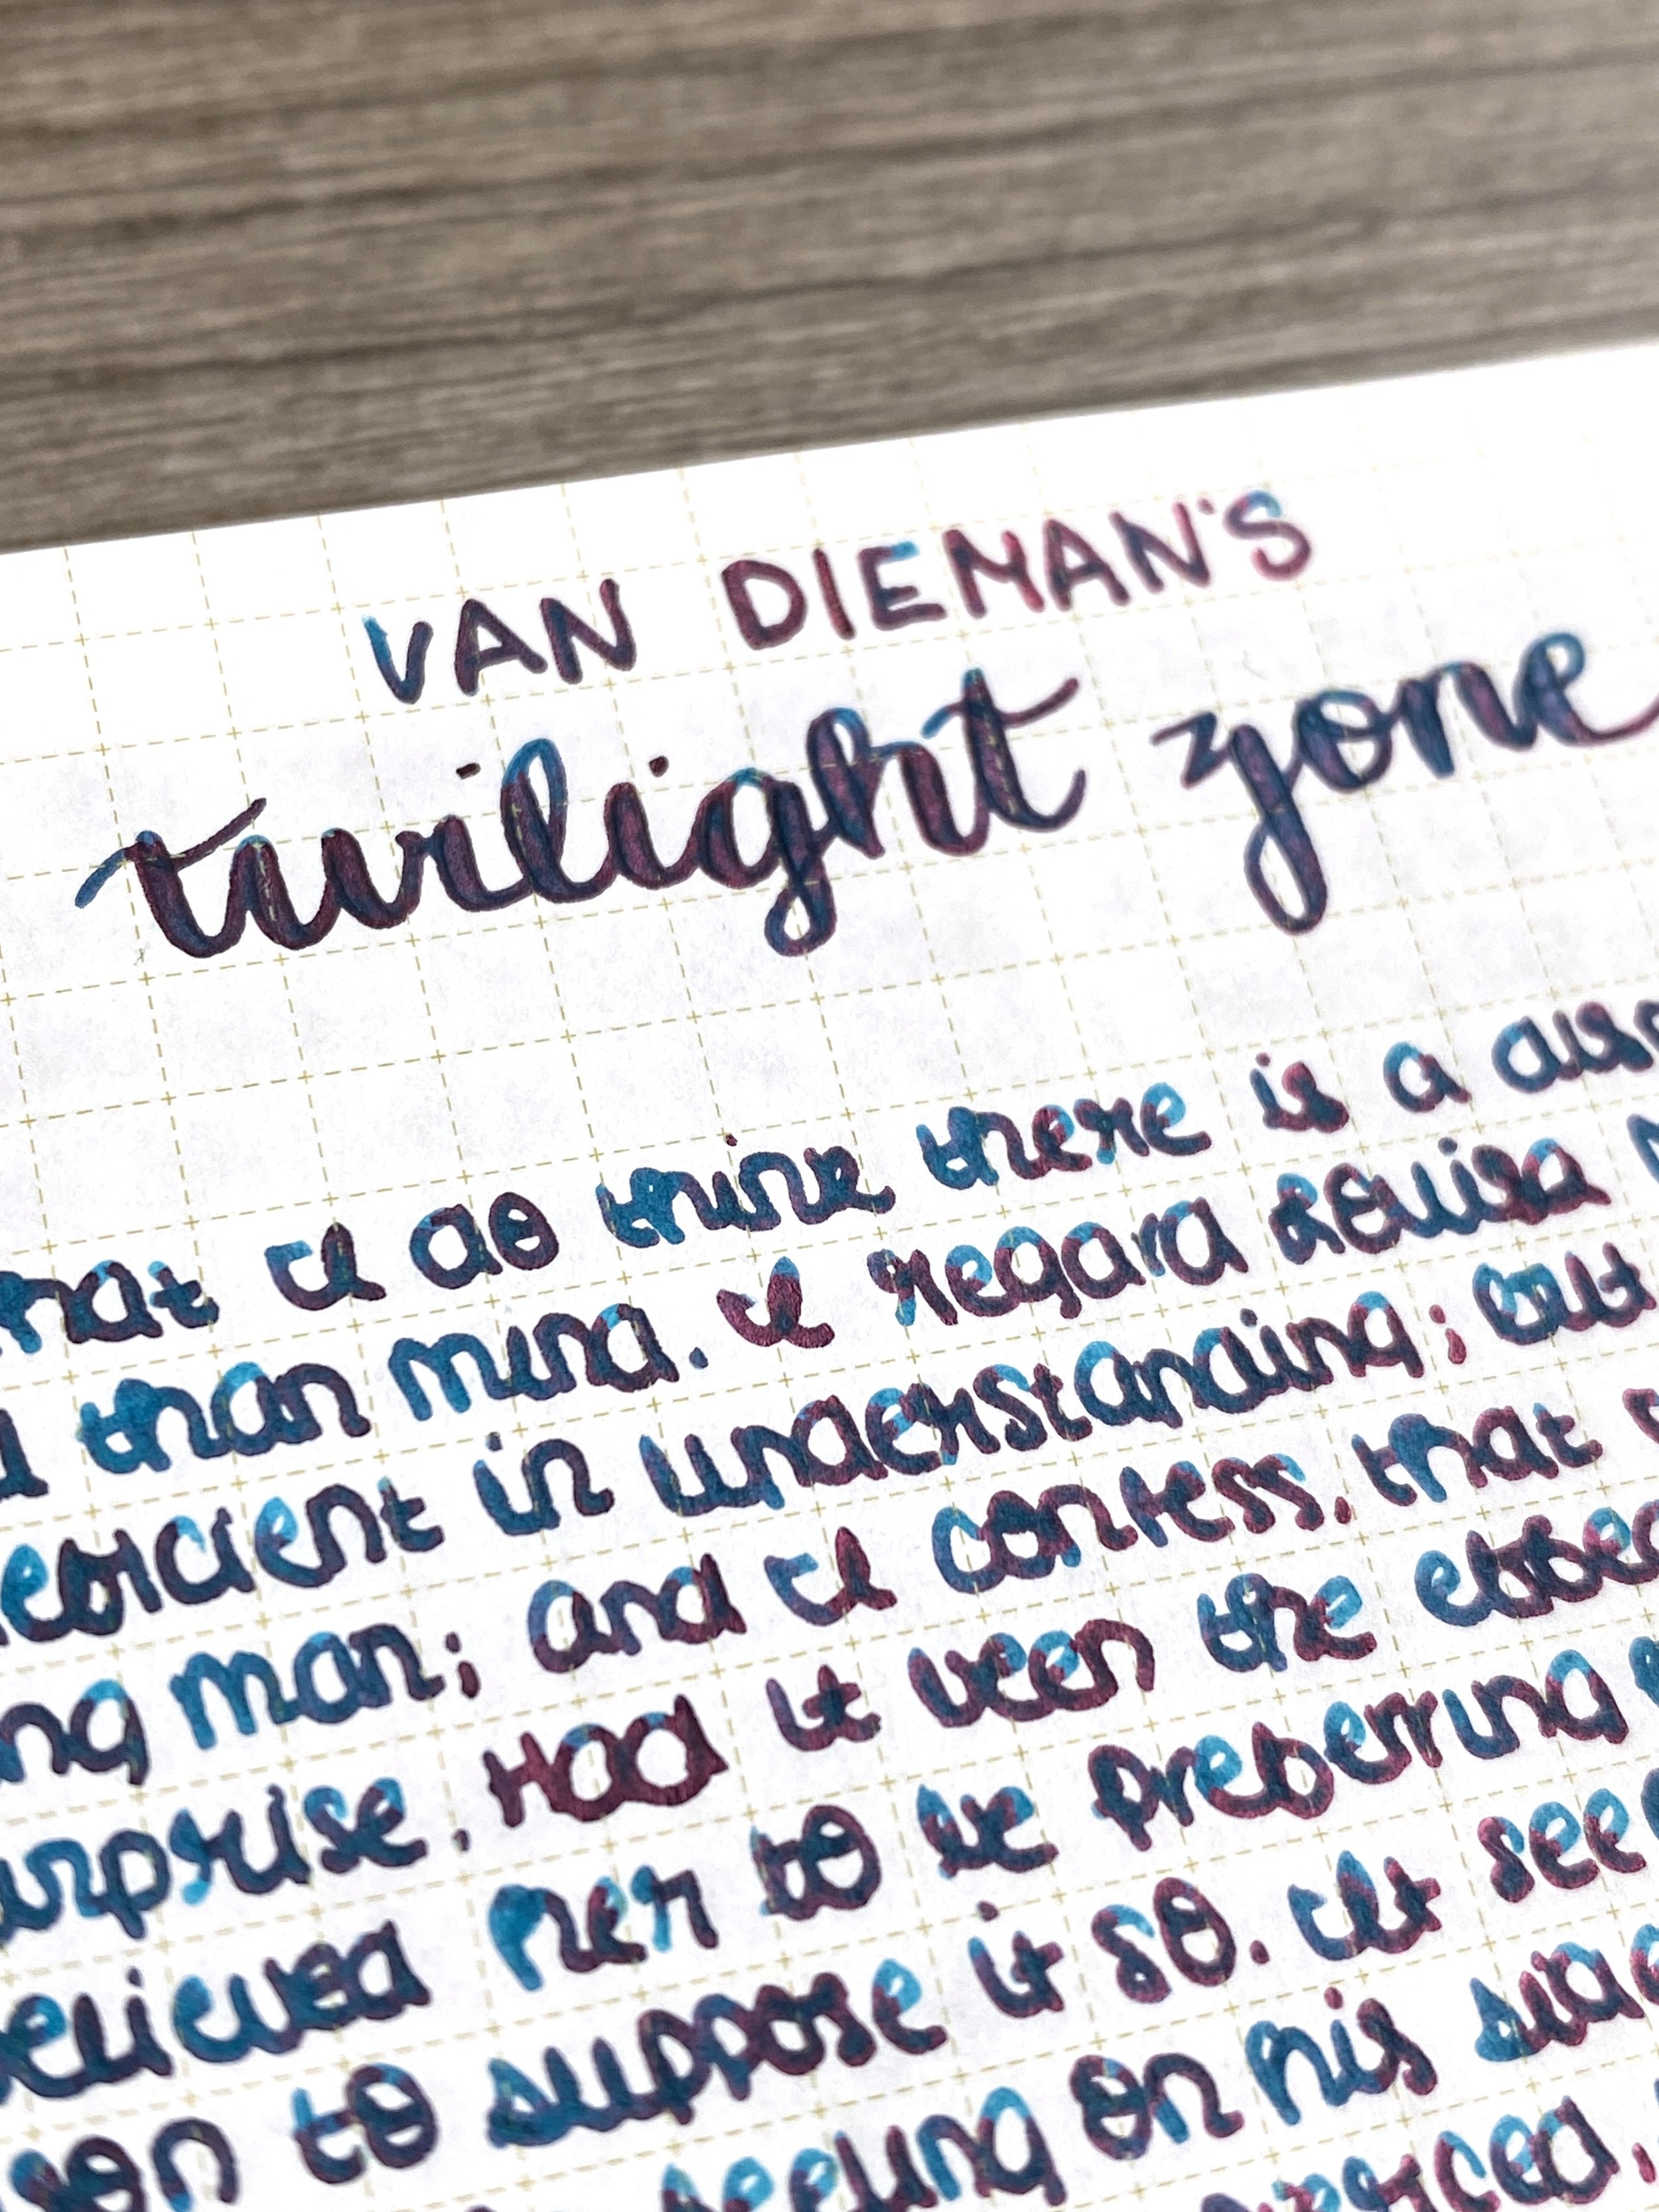 VAN DIEMAN'S
twilight zone
that I do think there is a
than mind. I regard Louisa
deficient in understanding; but
man; and I confess, that
surprise. Had it been the elder
believed her to be preferring
to suppose it so. It
feeling on his side